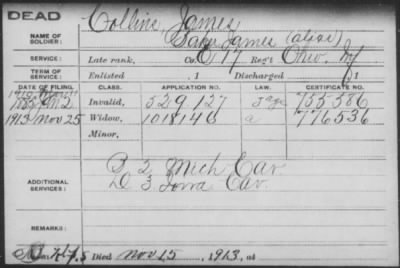 DEAD
Collins, James
NAME OF SOLDIER: James (alias)
SERVICE: Late rank, Co. 17 Reg't Ohio Inf
TERM OF SERVICE: Enlisted , 1 Discharged , 1
DATE OF FILING. CLASS. APPLICATION NO. LAW. CERTIFICATE NO.
Invalid, 529.127 755.586
1913 Nov 25 Widow, 1018146 a 776536
Minor,
ADDITIONAL SERVICES: B 2 Mich Cav
D 3 Iowa Cav.
REMARKS:
Died Nov 15, 1913, at